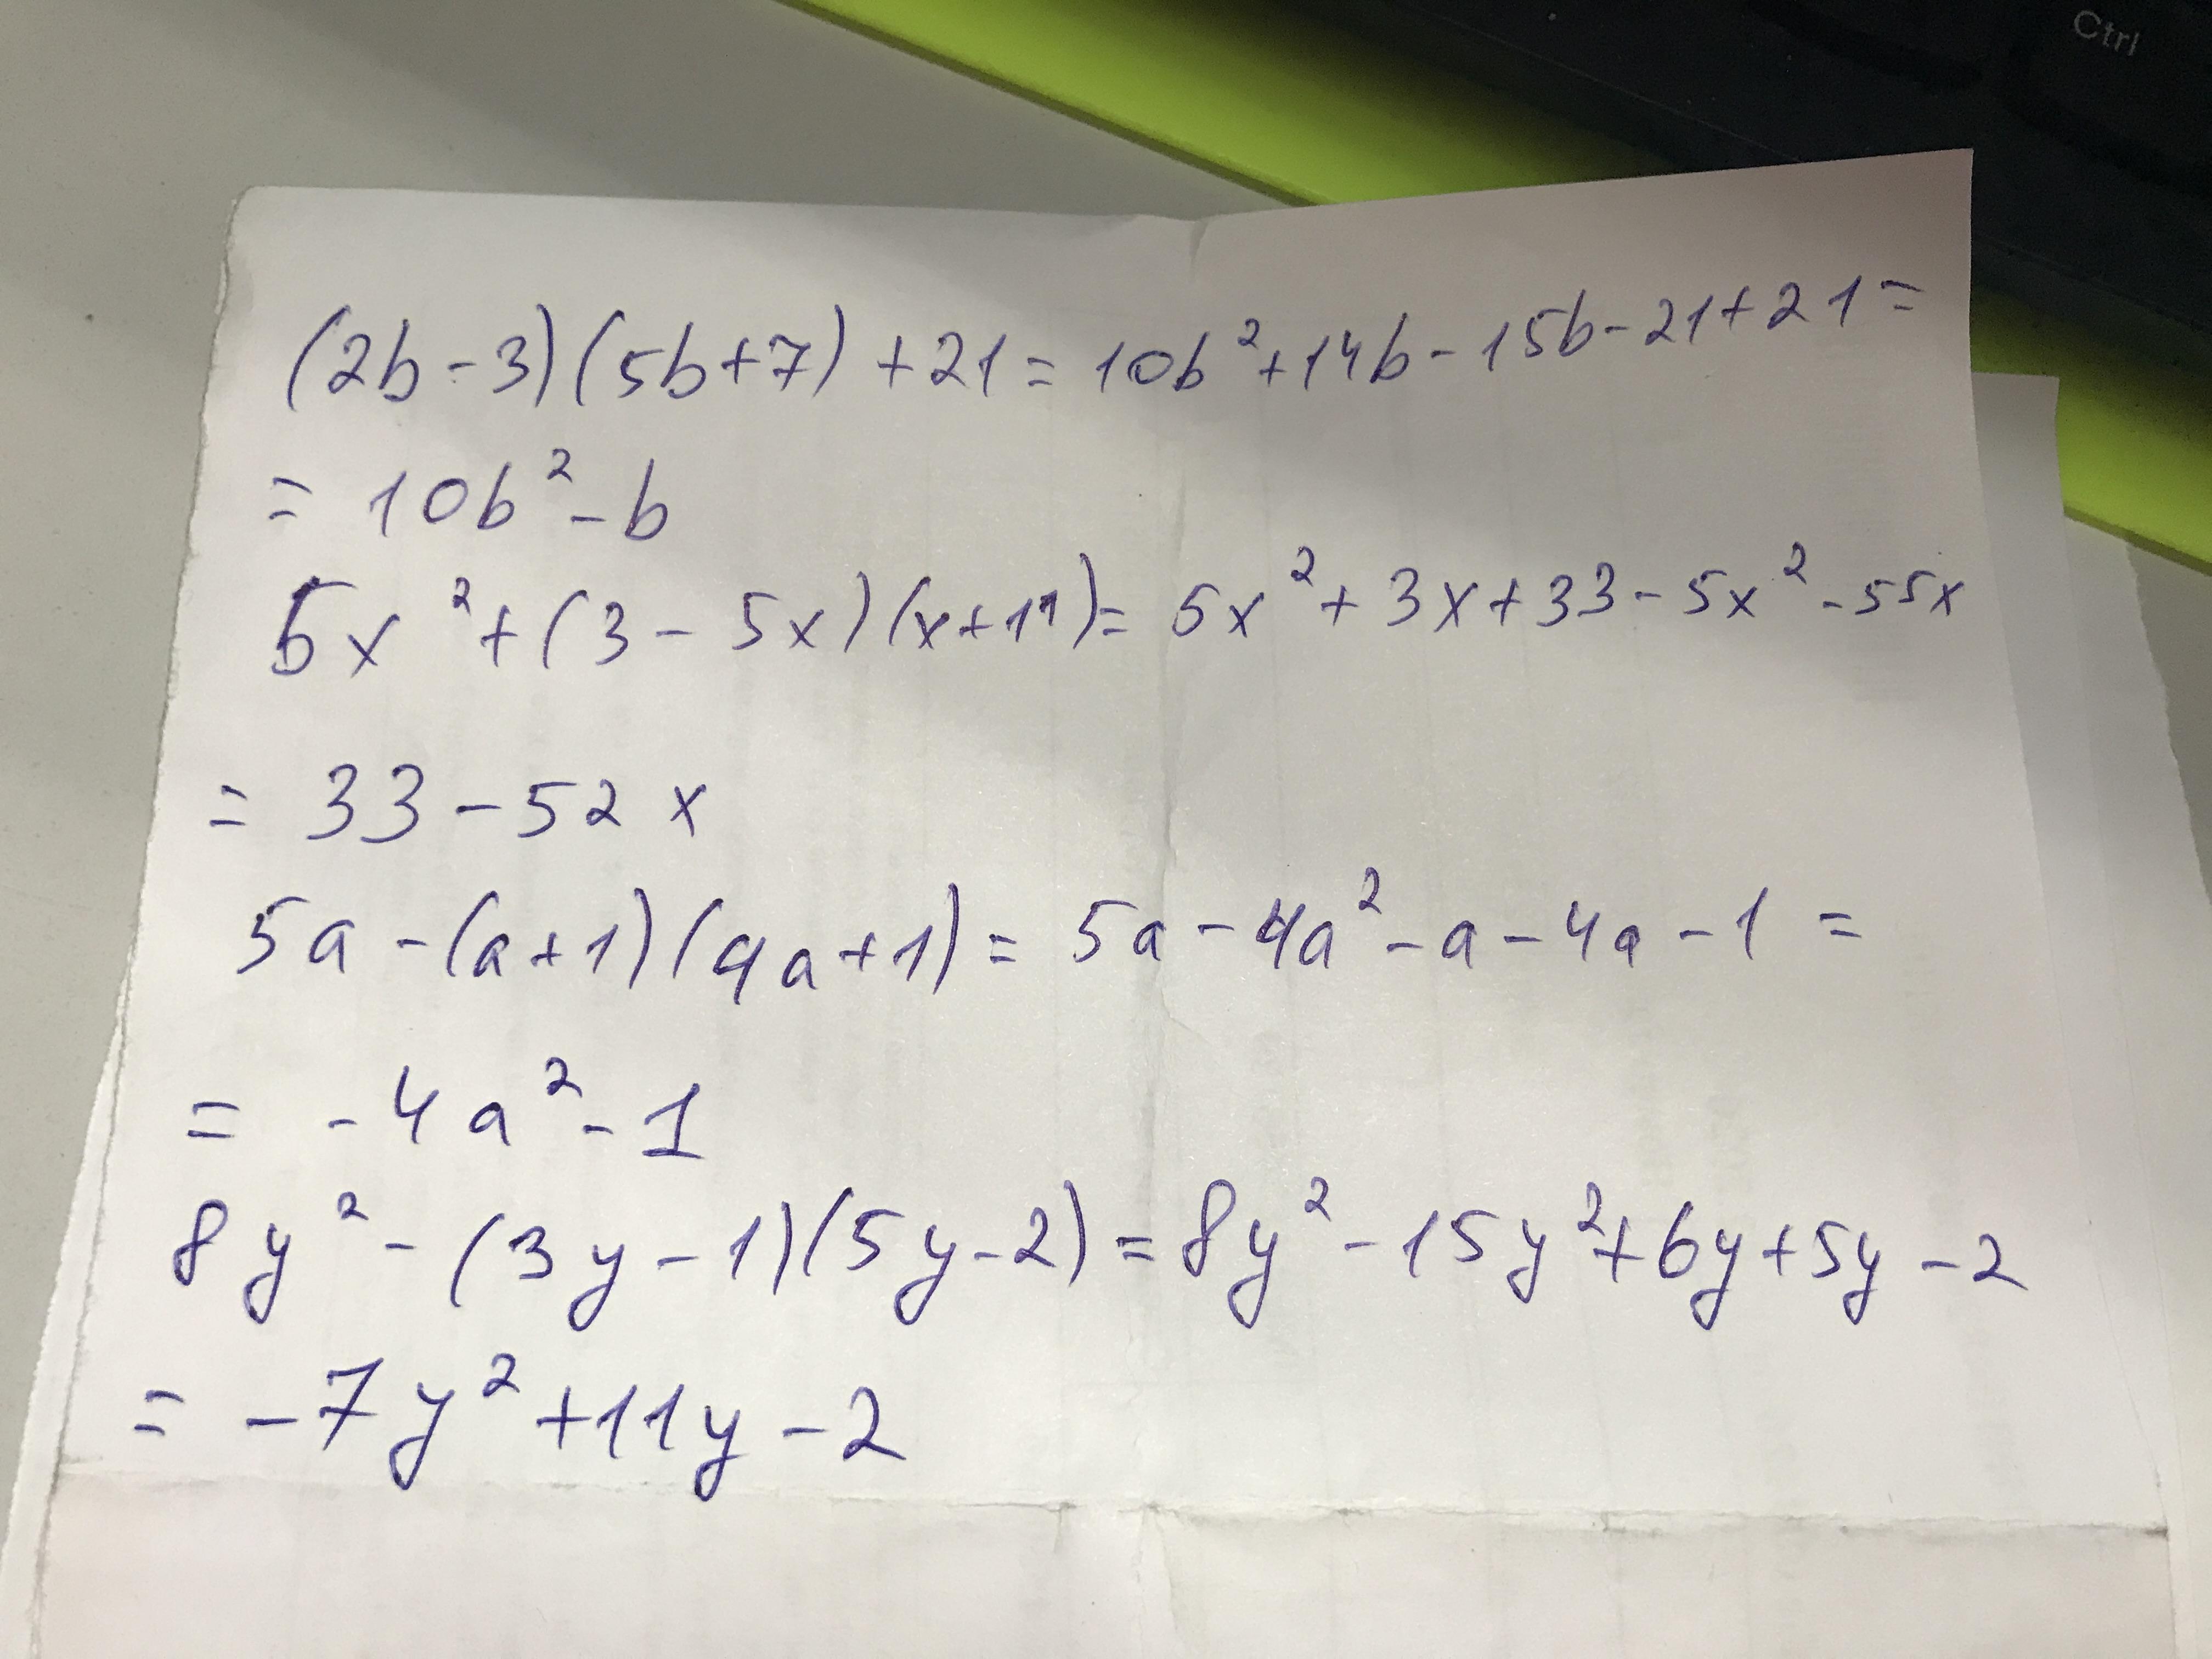 Ctrl
(2b-3)(5b+7)+21=10b²+14b-15b-21+21=
=10b²-b
5x²+(3-5x)(x+11)=5x²+3x+33-5x²-55x
=33-52x
5a-(a+1)(4a+1)=5a-4a²-a-4a-1=
=-4a²-1
8y²-(3y-1)(5y-2)=8y²-15y²+6y+5y-2
=-7y²+11y-2